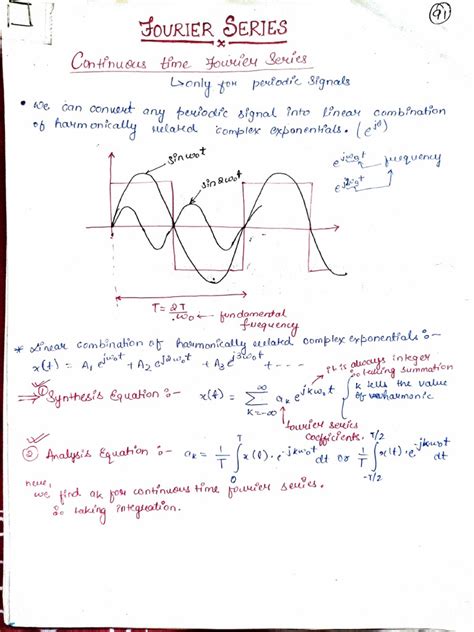 91
FOURIER SERIES
Continuous time Fourier Series
↳ only for periodic signals
• We can convert any periodic signal into linear combination
of harmonically related complex exponentials. (e^jθ)
sinω₀t
sin2ω₀t
e^jω₀t
frequency
e^j2ω₀t
T = 2π/ω₀ ← fundamental
frequency
* Linear combination of harmonically related complex exponentials :-
x(t) = A₁ e^jω₀t + A₂ e^j2ω₀t + A₃ e^j3ω₀t + - - -
① Synthesis Equation :- x(t) = ∞ Σ k=-∞ aₖ e^jkω₀t
is always integer
∴ taking summation
k tells the value
of harmonic
fourier series
coefficients.
② Analysis Equation :- aₖ = 1/T ∫₀^T x(t) . e^-jkω₀t dt or 1/T ∫_-T/2^T/2 x(t) . e^-jkω₀t dt
here,
we find aₖ for continuous time fourier series.
∴ taking integration.